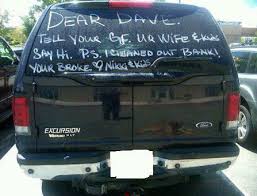 DEAR DAVE.
TELL YOUR GF, UR WIFE & KIDS
SAY HI. P.S. I CLEANED OUT BANK!
YOUR BROKE. ♡ NIKKI & KIDS
EXCURSION
Ford